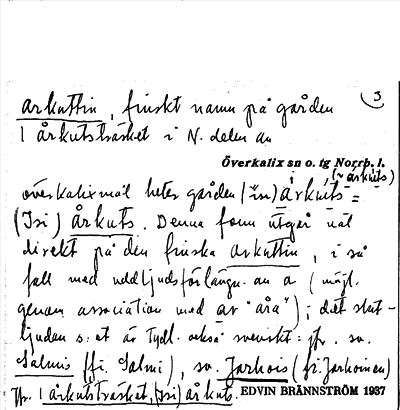 3
arkuttin, finskt namn på gården
i årkutsträsket i N. delen av
Överkalix sn o. tg Norrb. l.
(~ arkuts)
överkalixmål heter gården (in) årkuts =
(Isi) årkuts. Denna form utgår väl
direkt på den finska arkuttin, i så
fall med uddljudsförlängn. av a (möjl.
genom association med år "åra"); det slut-
ljudande s: et är tydl. också svenskt: jfr. sv.
Salmis (fi. Salmi), sv. Jarhois (fi. Jarhoinen)
Jfr. i årkutsträsket, (isi) årkuts.
EDVIN BRÄNNSTRÖM 1937